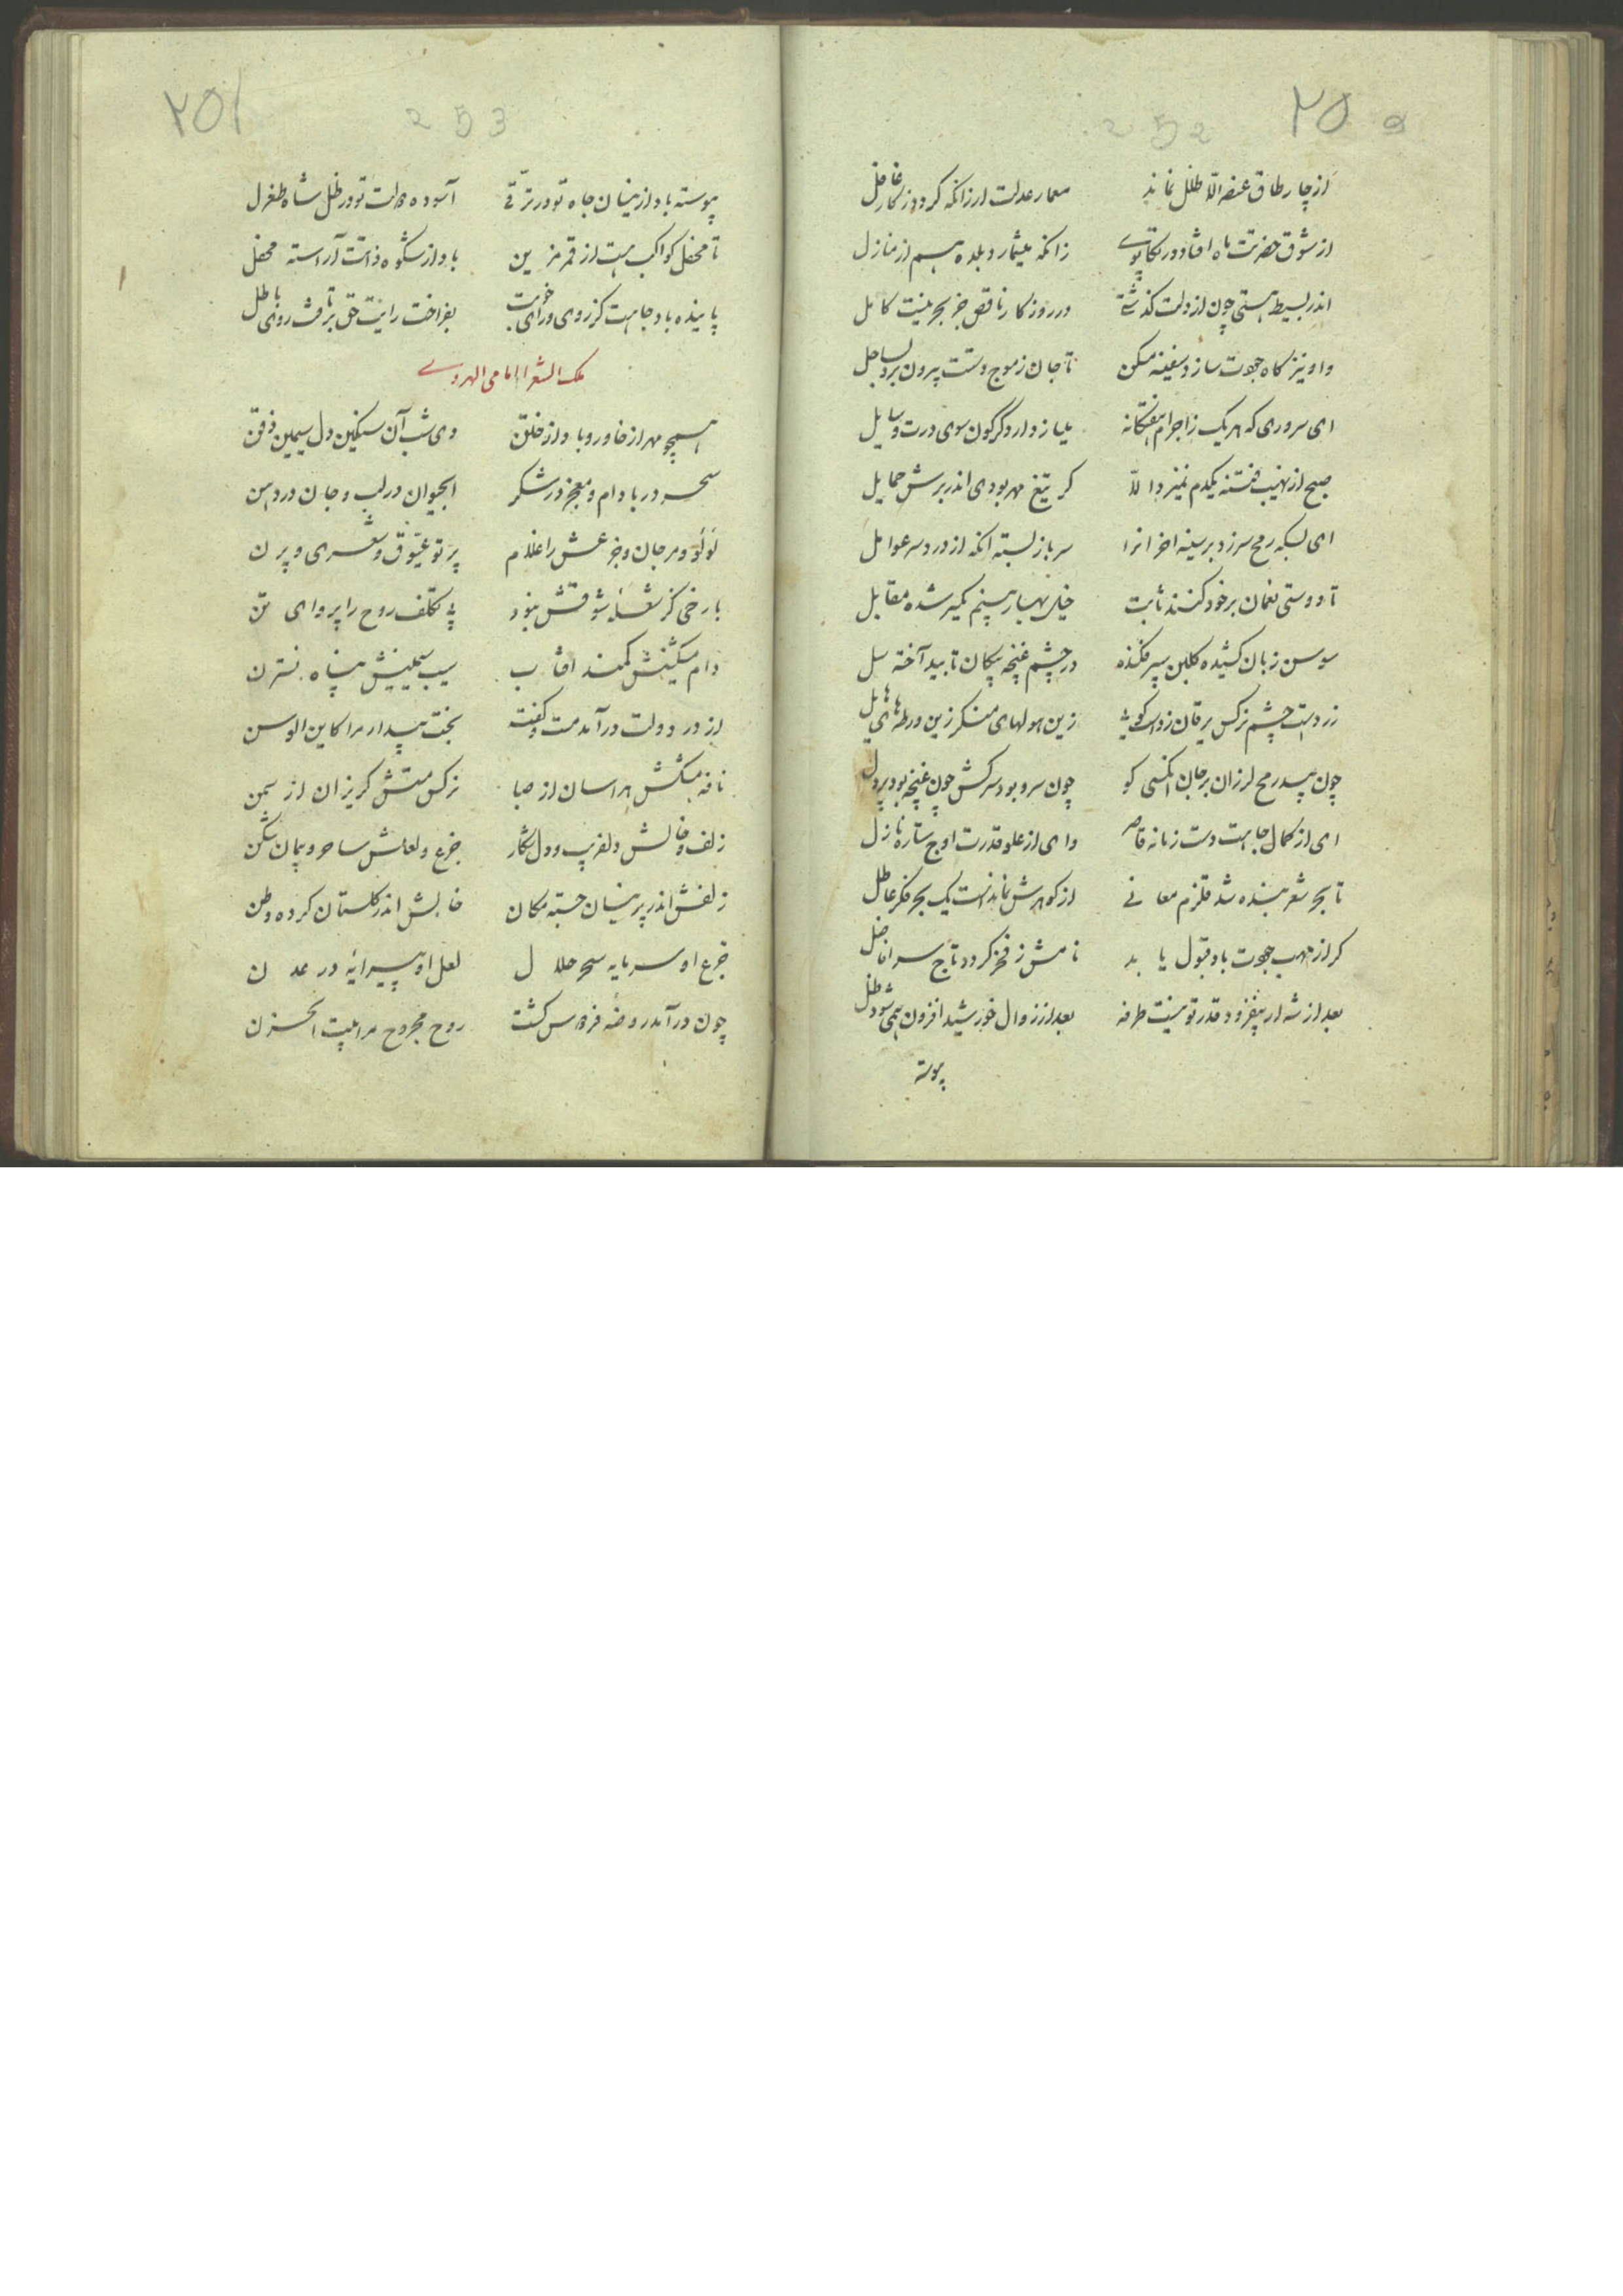 ۲۵۰
252
از چار طاق عنصر الا طلل نماند
معمار عدلت ار زانکه کردد ز کار غافل
از شوق حضرتت ماه افتاد در تکاپوے
زانکه میشمارد بلده هم از منازل
اندر بسیط هستی چون از دلت کذشتی
در روزکار ناقص جز بحر نیست کامل
واو نیز کاه جودت سازد سفینه مسکن
تا جان ز موج دستت بیرون برد بساحل
ای سروری که هریک ز اجرام هفتکانه
دارد کرکون سوی درت وسایل
صبح از نهیب فتنه یکدم نمیزد الا
کر تیغ مهر بودی اندر برش حمایل
ای بسکه رمح سر زد بر سینه اخترانرا
سر باز بسته انکه از درد سر عوامل
تا دوستی نعمان بر خود کنند ثابت
خیل بهار بینم یکسر شده مقابل
سوسن زبان کشیده کلبن سپر فکنده
در چشم غنچه پیکان تا بید آخته سل
زردست چشم نرکس یرقان زدست کوئی
زین هولهای منکر زین ورطه‌های هایل
چون بید رمح لرزان بر جان انکسی کو
چون سرو بود سرکش چون غنچه بود پردل
ای از کمال جاهت دست زمانه قاصر
وای از علو قدرت اوج ستاره نازل
تا بحر شعر بنده شد قلزم معانے
از کوهرش نماندست یک بحر فکر عاطل
کر از مهب جودت باد قبول یابد
نامش ز فخر کردد تاج سر افاضل
بعد از شه ار بیفزود قدر تو نیست طرفه
بعد از زوال خورشید افزون همی شود ظل
پیوسته
۲۵۱
253
پیوسته باد ازینسان جاه تو در ترقّے
آسوده دولت تو در ظل شاه طغرل
تا محفل کواکب هست از قمر مزین
باد از شکوه ذاتت آراسته محفل
پاینده باد جاهت کز روی و رای خوبت
بفراخت رایت حق بر تافت روی باطل
ملک الشعرا امامی الهروے
همچو مهر از خاور و باد از ختن
دی شب آن سنکین دل سیمین ذقن
سحر در بادام و معجز در شکر
ابحیوان در لب و جان در دهن
لؤلؤ و مرجان و جزعش را غلام
پرتو عیّوق و شعری و پرن
با رخی کز شعلهٔ شوقش نبود
بی تکلف روح را پروای تن
دام مشکینش کمند افتاب
سیب سیمینش پناه نسترن
از در دولت در آمد مست و کفت
بخت بیدار مرا کاین الوسن
نافه مشکش هراسان از صبا
نرکس مستش کریزان از سمن
زلف و خالش دلفریب و دل شکار
جزع و لعلش ساحر و پیمان شکن
زلفش اندر پرنیان جسته مکان
خالش اندر کلستان کرده وطن
جزع او سرمایه سحر حلال
لعل او پیرایه در عدن
چون در آمد روضه فردوس کشت
روح مجروح مرا بیت الحزن